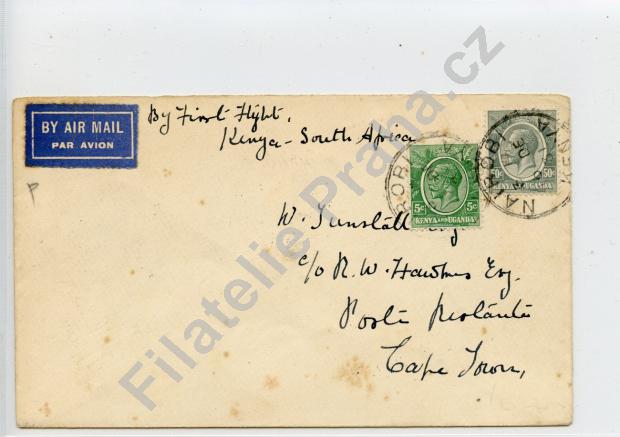 BY AIR MAIL
PAR AVION
By First Flight,
Kenya - South Africa
NAIROBI
KENYA
50c 50c
KENYA AND UGANDA
5c 5c
KENYA AND UGANDA
W. Tunstall
c/o R. W. Hawkins Esq.
Poste Restante
Cape Town,
Filatelie Praha.cz